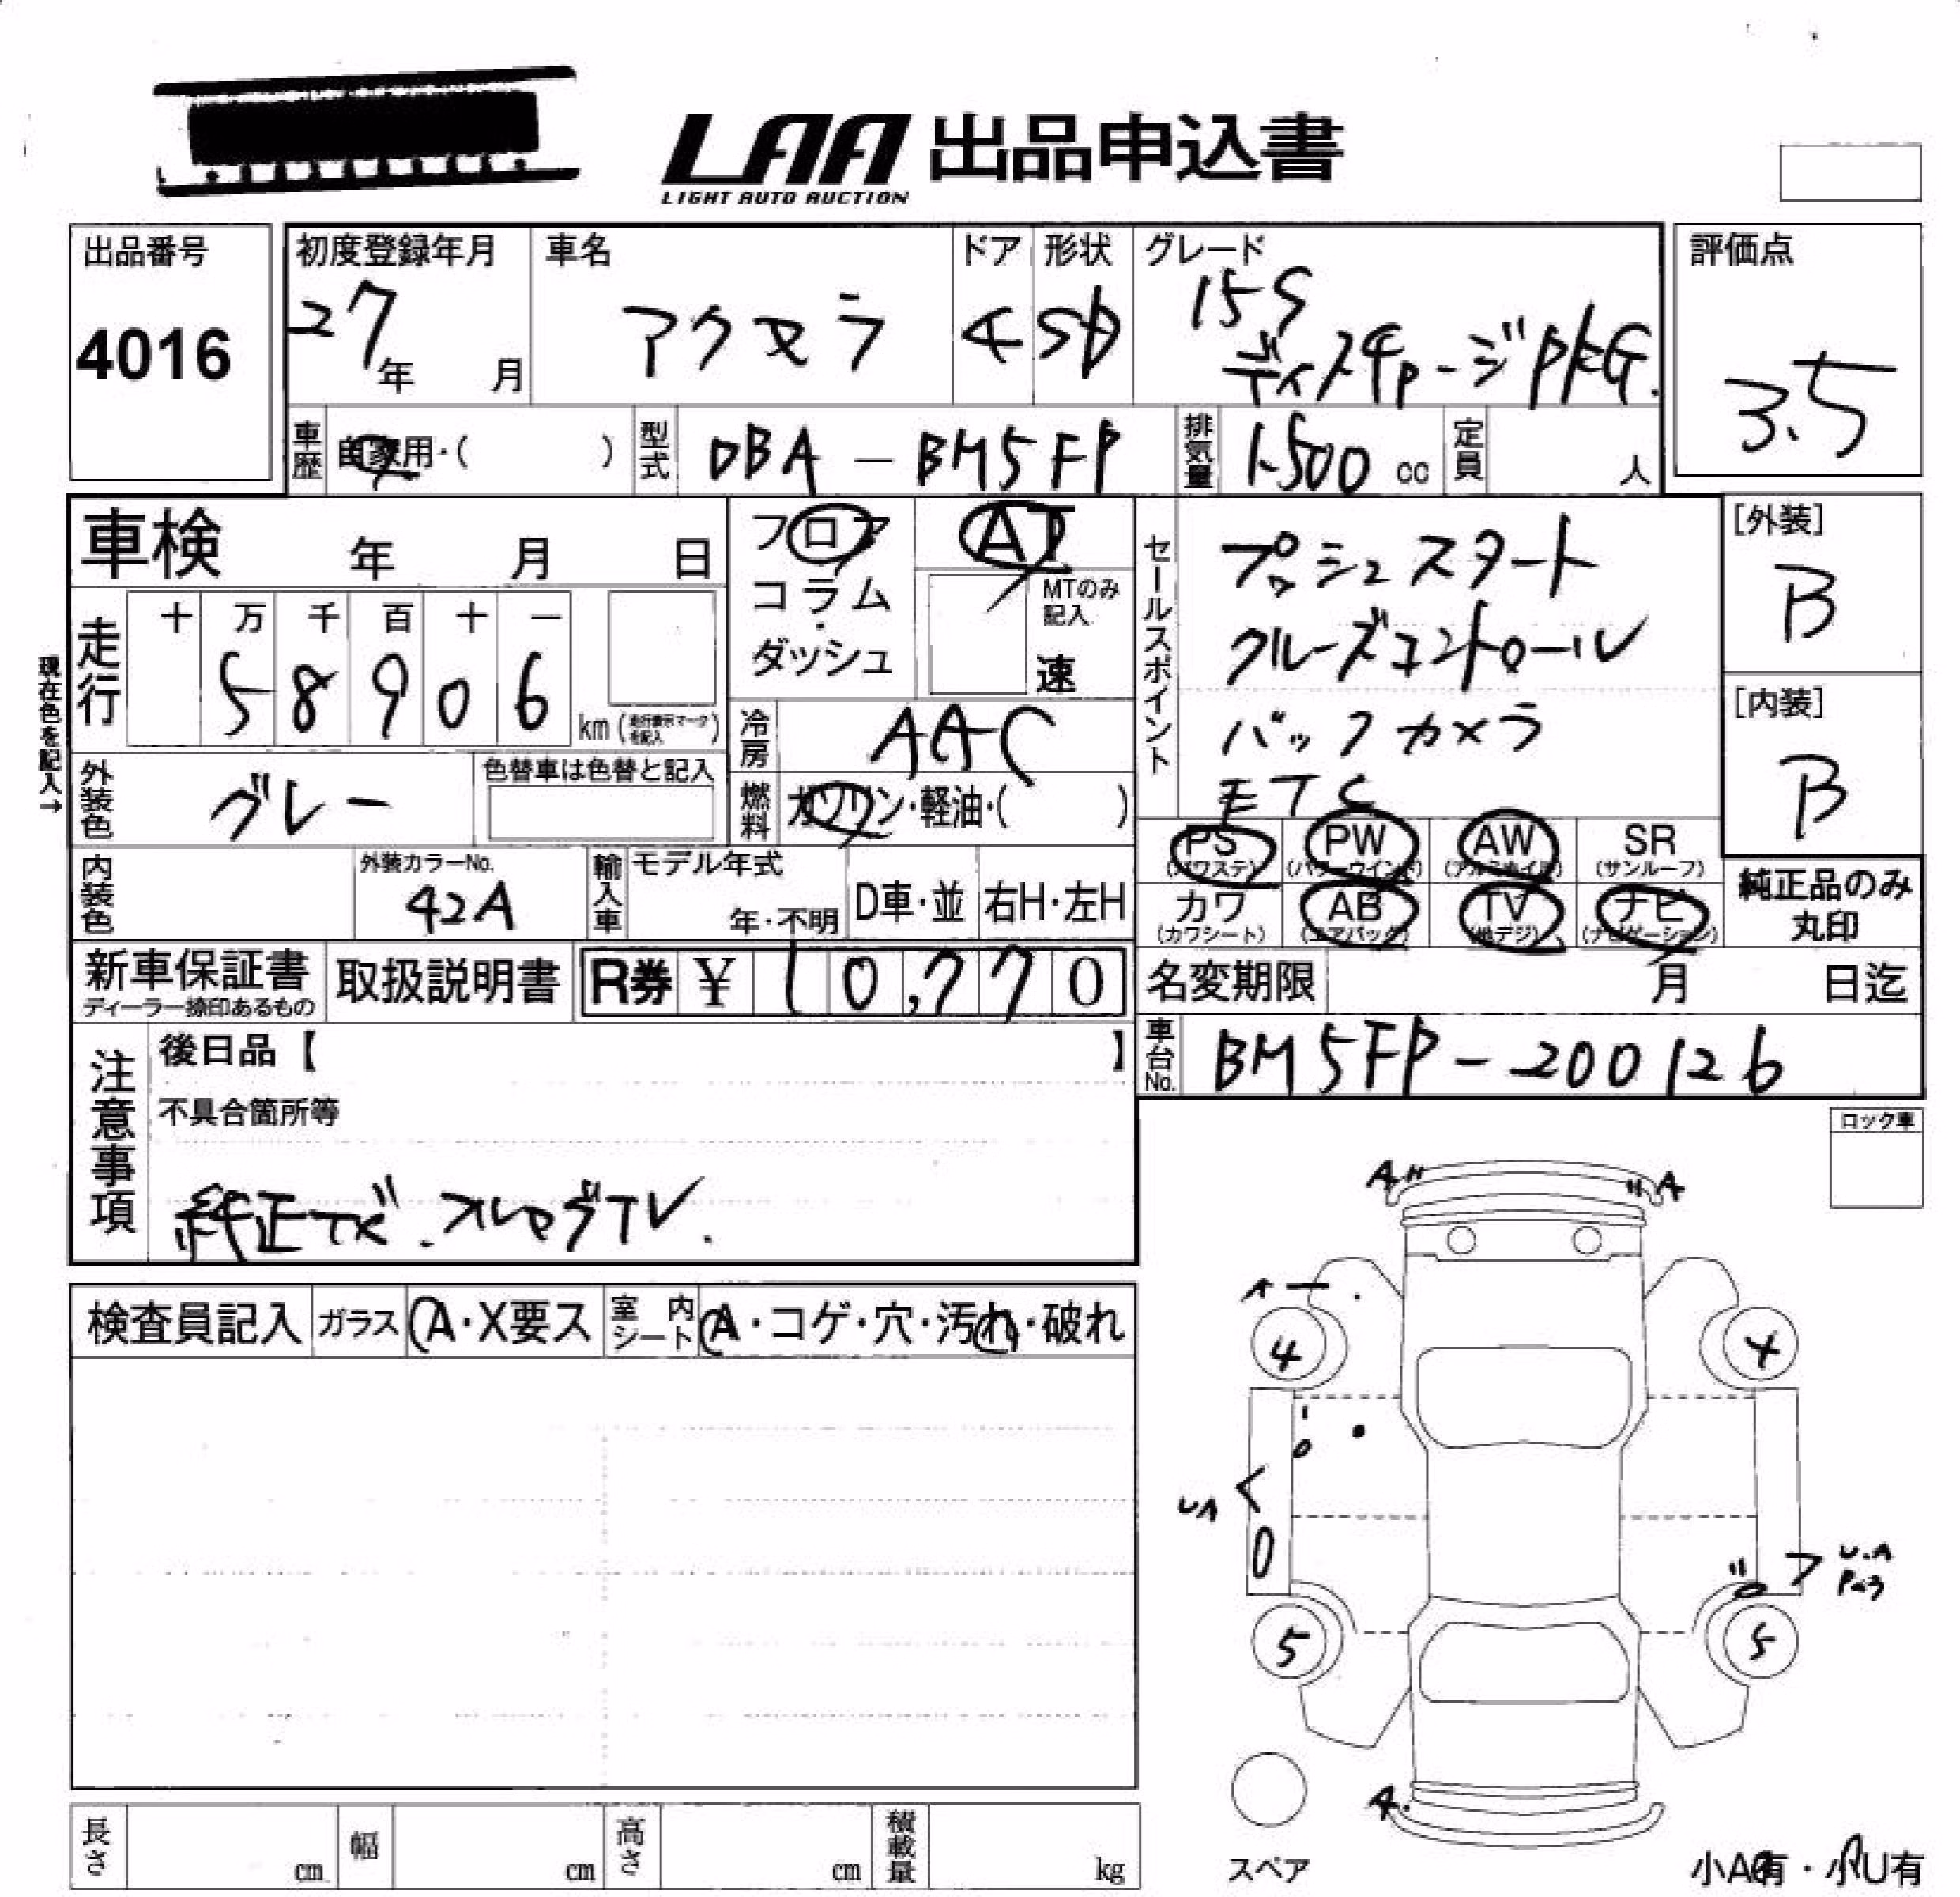 LAA 出品申込書
LIGHT AUTO AUCTION
出品番号
4016
初度登録年月
27年 月
車名
アクセラ
ドア
4
形状
SD
グレード
15S
ディスチャージPKG.
評価点
3.5
車歴
自家用・( )
型式
DBA-BM5FP
排気量
1500 cc
定員
人
車検 年 月 日
フロア
コラム
・
ダッシュ
AT
MTのみ
記入
速
現在色を記入→
走行
十 万 千 百 十 一
5 8 9 0 6
km (走行表示マークを記入)
冷房
AAC
外装色
グレー
色替車は色替と記入
燃料
ガソリン・軽油・( )
セールスポイント
プッシュスタート
クルーズコントロール
バックカメラ
ETC
[外装]
B
[内装]
B
PS (パワステ)
PW (パワーウインド)
AW (アルミホイル)
SR (サンルーフ)
カワ (カワシート)
AB (エアバック)
TV (地デジ)
ナビ (ナビゲーション)
純正品のみ
丸印
内装色
外装カラーNo.
42A
輸入車
モデル年式
年・不明
D車・並
右H・左H
新車保証書
ディーラー捺印あるもの
取扱説明書
R券 ¥ 10,770
名変期限 月 日迄
車台No.
BM5FP-200126
注意事項
後日品【 】
不具合箇所等
純正ナビ.フルセグTV.
ロック車
検査員記入
ガラス
A・X要ス
室内シート
A・コゲ・穴・汚れ・破れ
A〃
〃A
A
4
4
UA
U.A
5
5
A.
スペア
長さ cm
幅 cm
高さ cm
積載量 kg
小A有・小U有